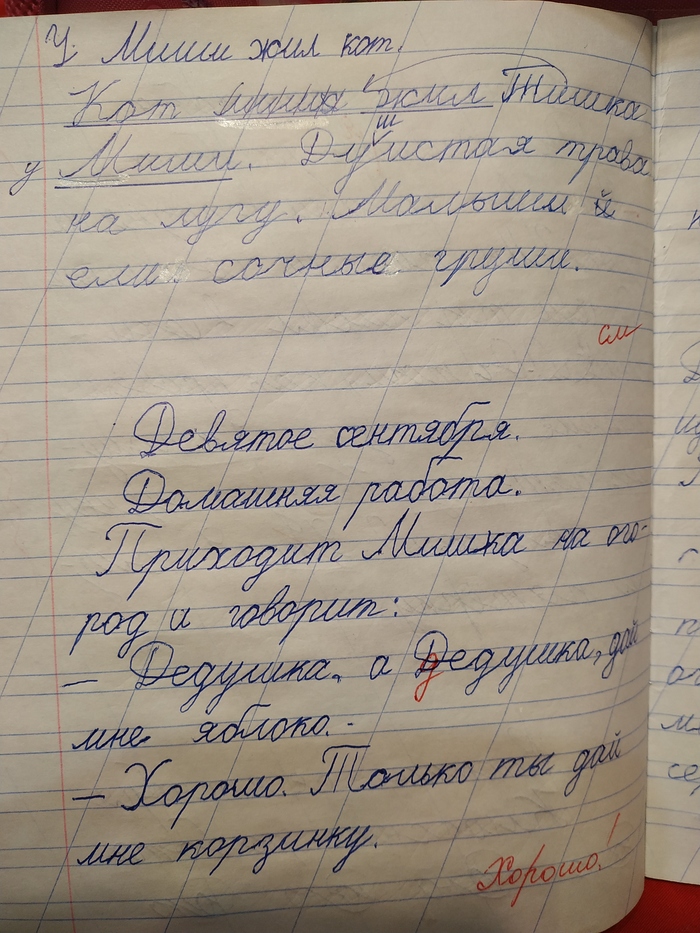 У Миши жил кот.
Кот жил Тишка
у Миши. Душистая трава
на лугу. Малыши
ели сочные груши.
см
Девятое сентября.
Домашняя работа.
Приходит Мишка на ого-
род и говорит:
– Дедушка, а дедушка, дай
мне яблоко. -
– Хорошо. Только ты дай
мне корзинку.
Хорошо!